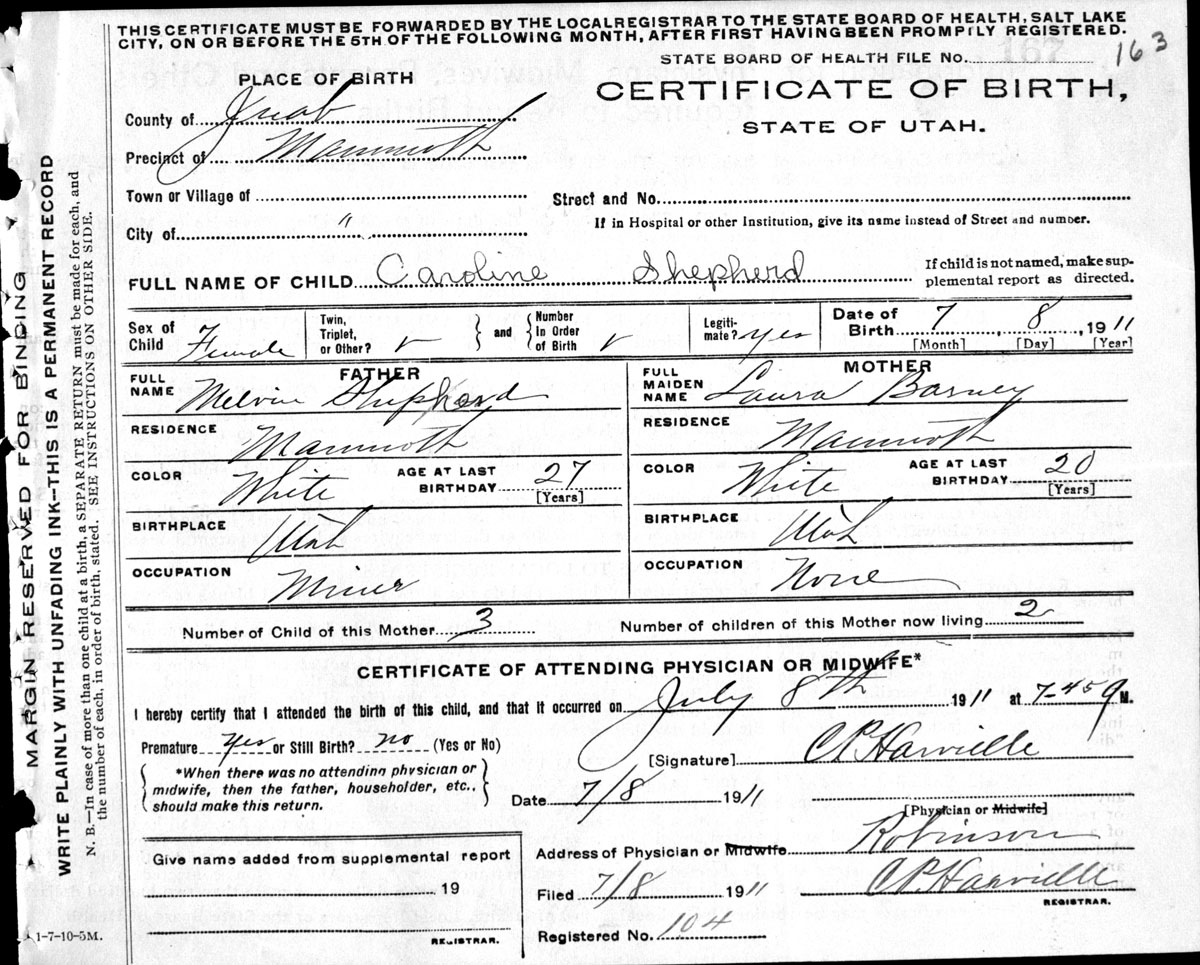 THIS CERTIFICATE MUST BE FORWARDED BY THE LOCAL REGISTRAR TO THE STATE BOARD OF HEALTH, SALT LAKE
CITY, ON OR BEFORE THE 5TH OF THE FOLLOWING MONTH, AFTER FIRST HAVING BEEN PROMPILY REGISTERED.
STATE BOARD OF HEALTH FILE No. 167 163
PLACE OF BIRTH
CERTIFICATE OF BIRTH,
STATE OF UTAH.
County of Juab
Precinct of Mammoth
Town or Village of
Street and No.
City of "
If in Hospital or other Institution, give its name instead of Street and number.
FULL NAME OF CHILD Caroline Shepherd
If child is not named, make sup-
plemental report as directed.
Sex of Child Female
Twin, Triplet, or Other? and Number In Order of Birth
Legiti-mate? yes
Date of Birth 7, 8, 1911
[Month] [Day] [Year]
FATHER
MOTHER
FULL NAME Melvin Shepherd
FULL MAIDEN NAME Laura Barney
RESIDENCE Mammoth
RESIDENCE Mammoth
COLOR White AGE AT LAST BIRTHDAY 27 [Years]
COLOR White AGE AT LAST BIRTHDAY 20 [Years]
BIRTHPLACE Utah
BIRTHPLACE Utah
OCCUPATION Miner
OCCUPATION None
Number of Child of this Mother 3
Number of children of this Mother now living 2
CERTIFICATE OF ATTENDING PHYSICIAN OR MIDWIFE*
I hereby certify that I attended the birth of this child, and that it occurred on July 8th 1911 at 7-45 M.
Premature yes or Still Birth? no (Yes or No)
[Signature] C P Harvielle
*When there was no attending physician or
midwife, then the father, householder, etc.,
should make this return.
Date 7/8 1911
[Physician or Midwife]
Give name added from supplemental report
19
REGISTRAR.
Address of Physician or Midwife Robinson
Filed 7/8 1911 C P Harvielle
REGISTRAR.
Registered No. 104
1-7-10-5M.
MARGIN RESERVED FOR BINDING
WRITE PLAINLY WITH UNFADING INK--THIS IS A PERMANENT RECORD
N. B.—In case of more than one child at a birth, a SEPARATE RETURN must be made for each, and
the number of each, in order of birth, stated. SEE INSTRUCTIONS ON OTHER SIDE.